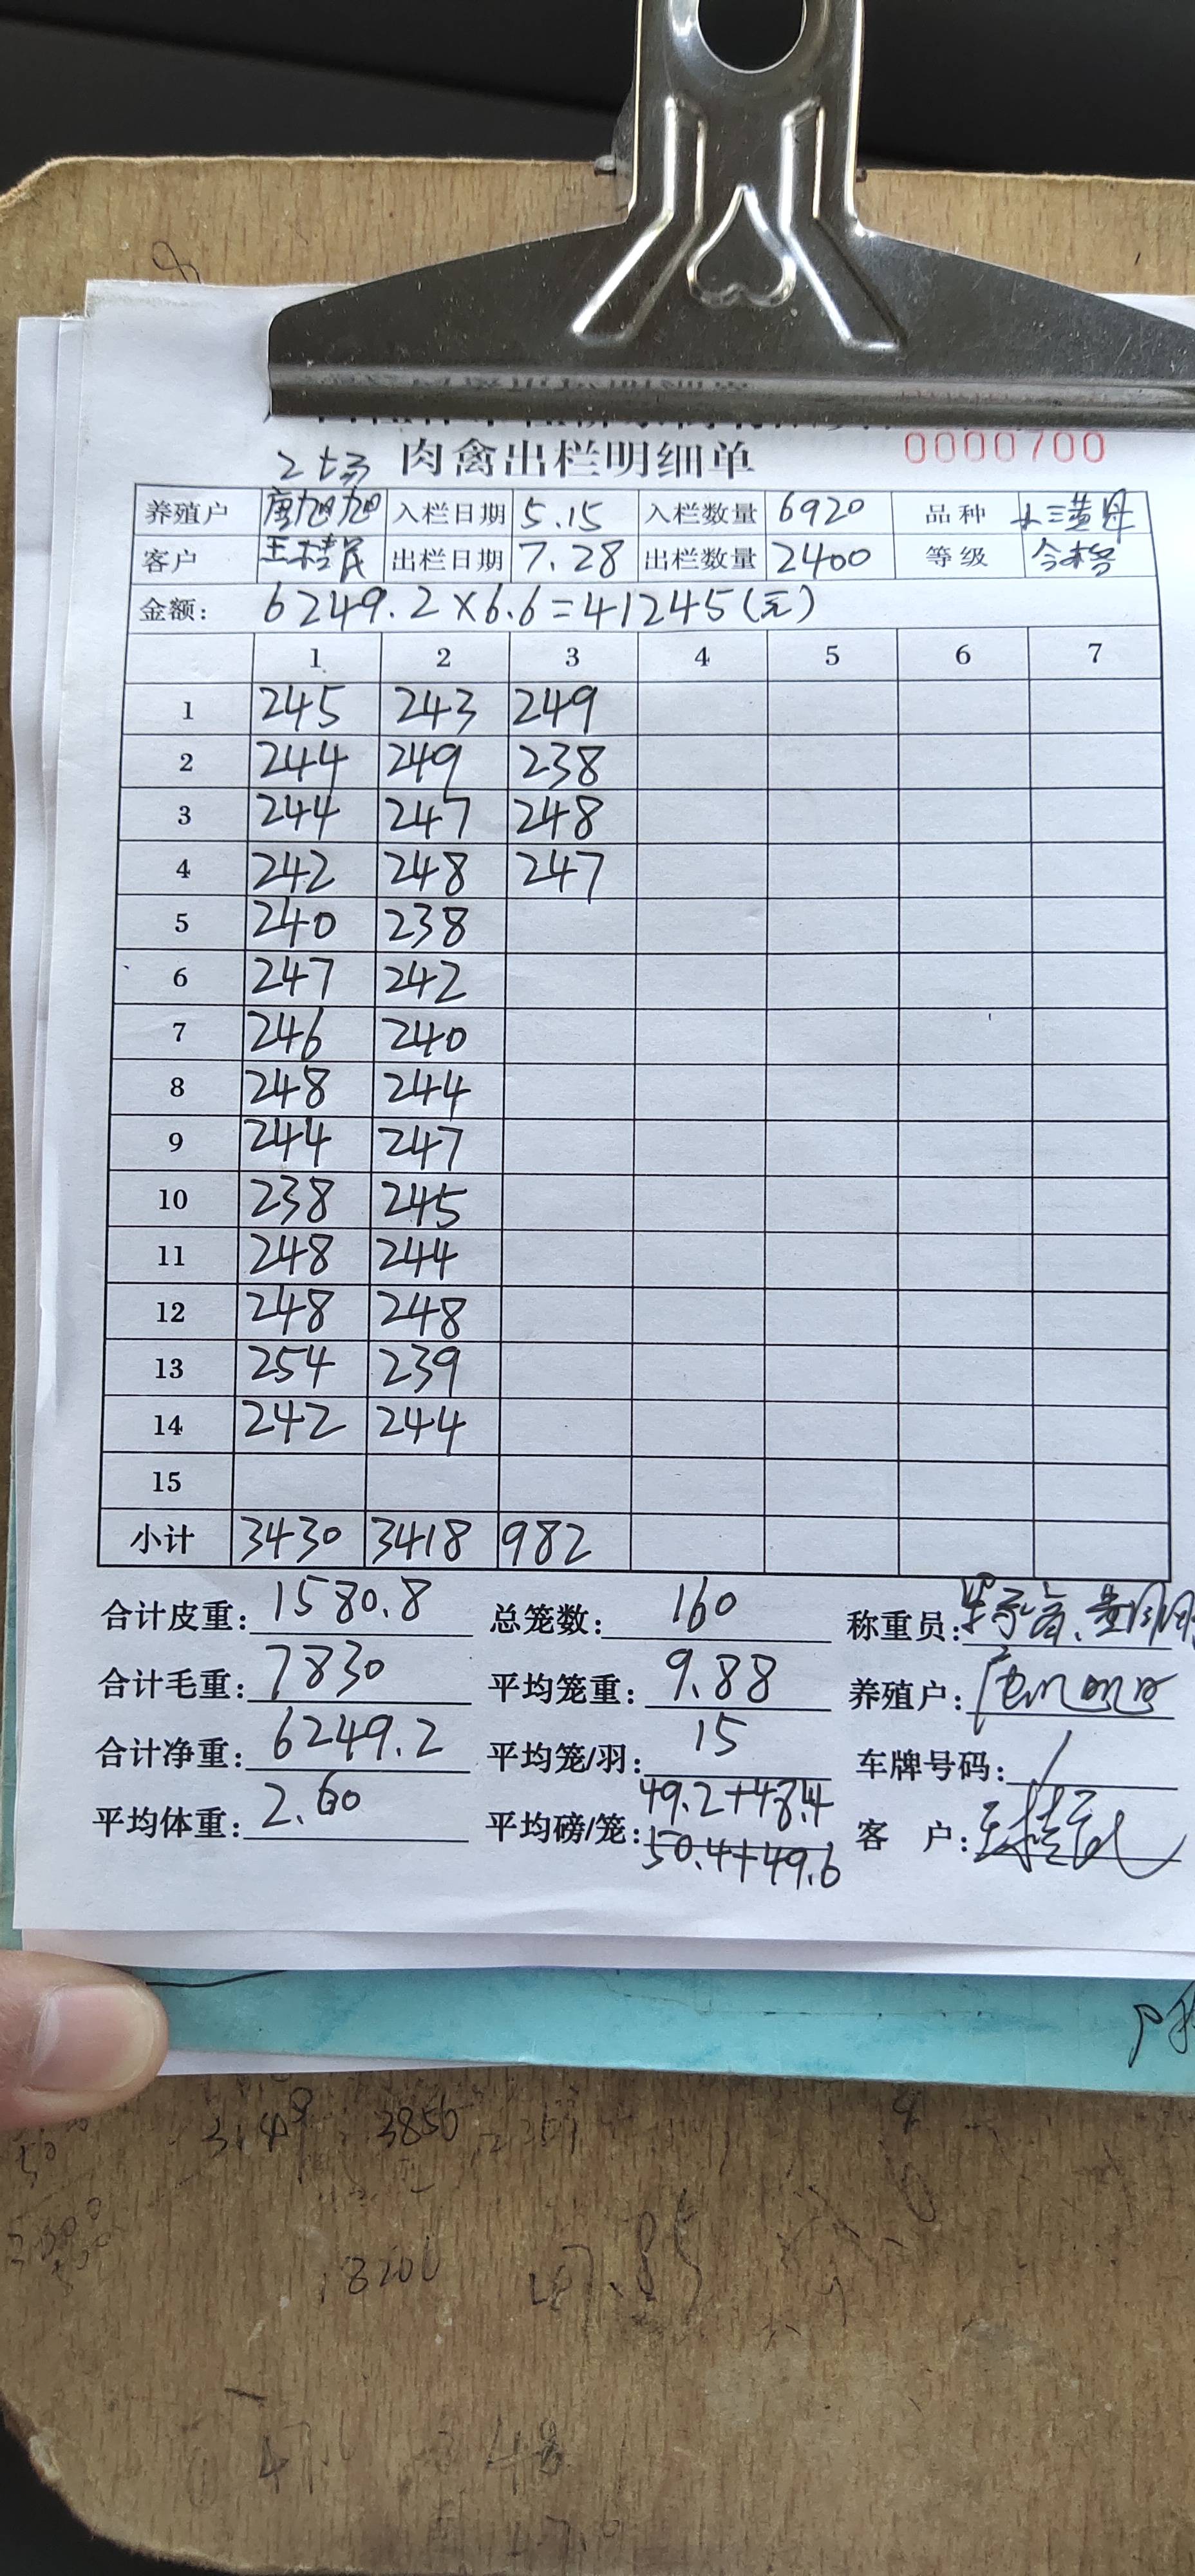 0000700
2场 肉禽出栏明细单
养殖户 唐旭旭 入栏日期 5.15 入栏数量 6920 品种
客户 王桂民 出栏日期 7.28 出栏数量 2400 等级 合格
金额: 6249.2×6.6=41245(元)
1 2 3 4 5 6 7
1 245 243 249
2 244 249 238
3 244 247 248
4 242 248 247
5 240 238
6 247 242
7 246 240
8 248 244
9 244 247
10 238 245
11 248 244
12 248 248
13 254 239
14 242 244
15
小计 3430 3418 982
合计皮重: 1580.8 总笼数: 160 称重员:
合计毛重: 7830 平均笼重: 9.88 养殖户:
合计净重: 6249.2 平均笼/羽: 15 车牌号码: /
平均体重: 2.60 平均磅/笼: 49.2+48.4 客 户: 王桂民
50.4+49.6
3850